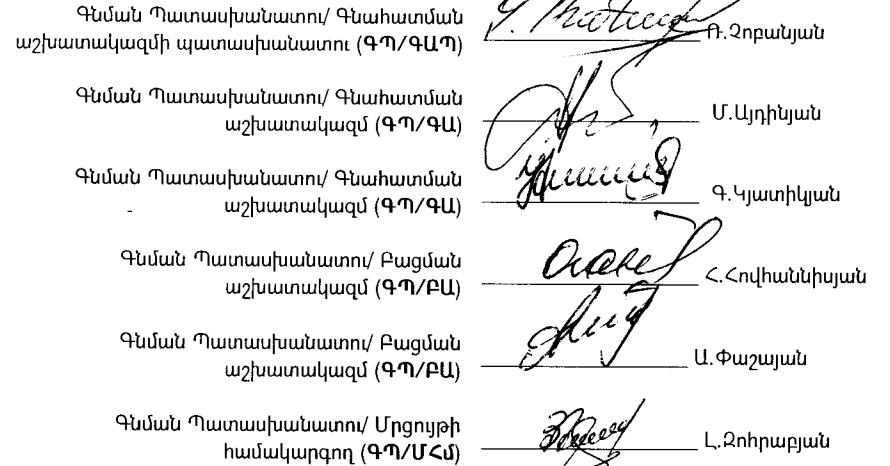 Գնման Պատասխանատու/ Գնահատման
աշխատակազմի պատասխանատու (ԳՊ/ԳԱՊ)
Ռ.Չոբանյան
Գնման Պատասխանատու/ Գնահատման
աշխատակազմ (ԳՊ/ԳԱ)
Մ.Այդինյան
Գնման Պատասխանատու/ Գնահատման
աշխատակազմ (ԳՊ/ԳԱ)
Գ.Կյատիկյան
Գնման Պատասխանատու/ Բացման
աշխատակազմ (ԳՊ/ԲԱ)
Հ.Հովհաննիսյան
Գնման Պատասխանատու/ Բացման
աշխատակազմ (ԳՊ/ԲԱ)
Ա.Փաշայան
Գնման Պատասխանատու/ Մրցույթի
համակարգող (ԳՊ/ՄՀմ)
Լ.Զոհրաբյան